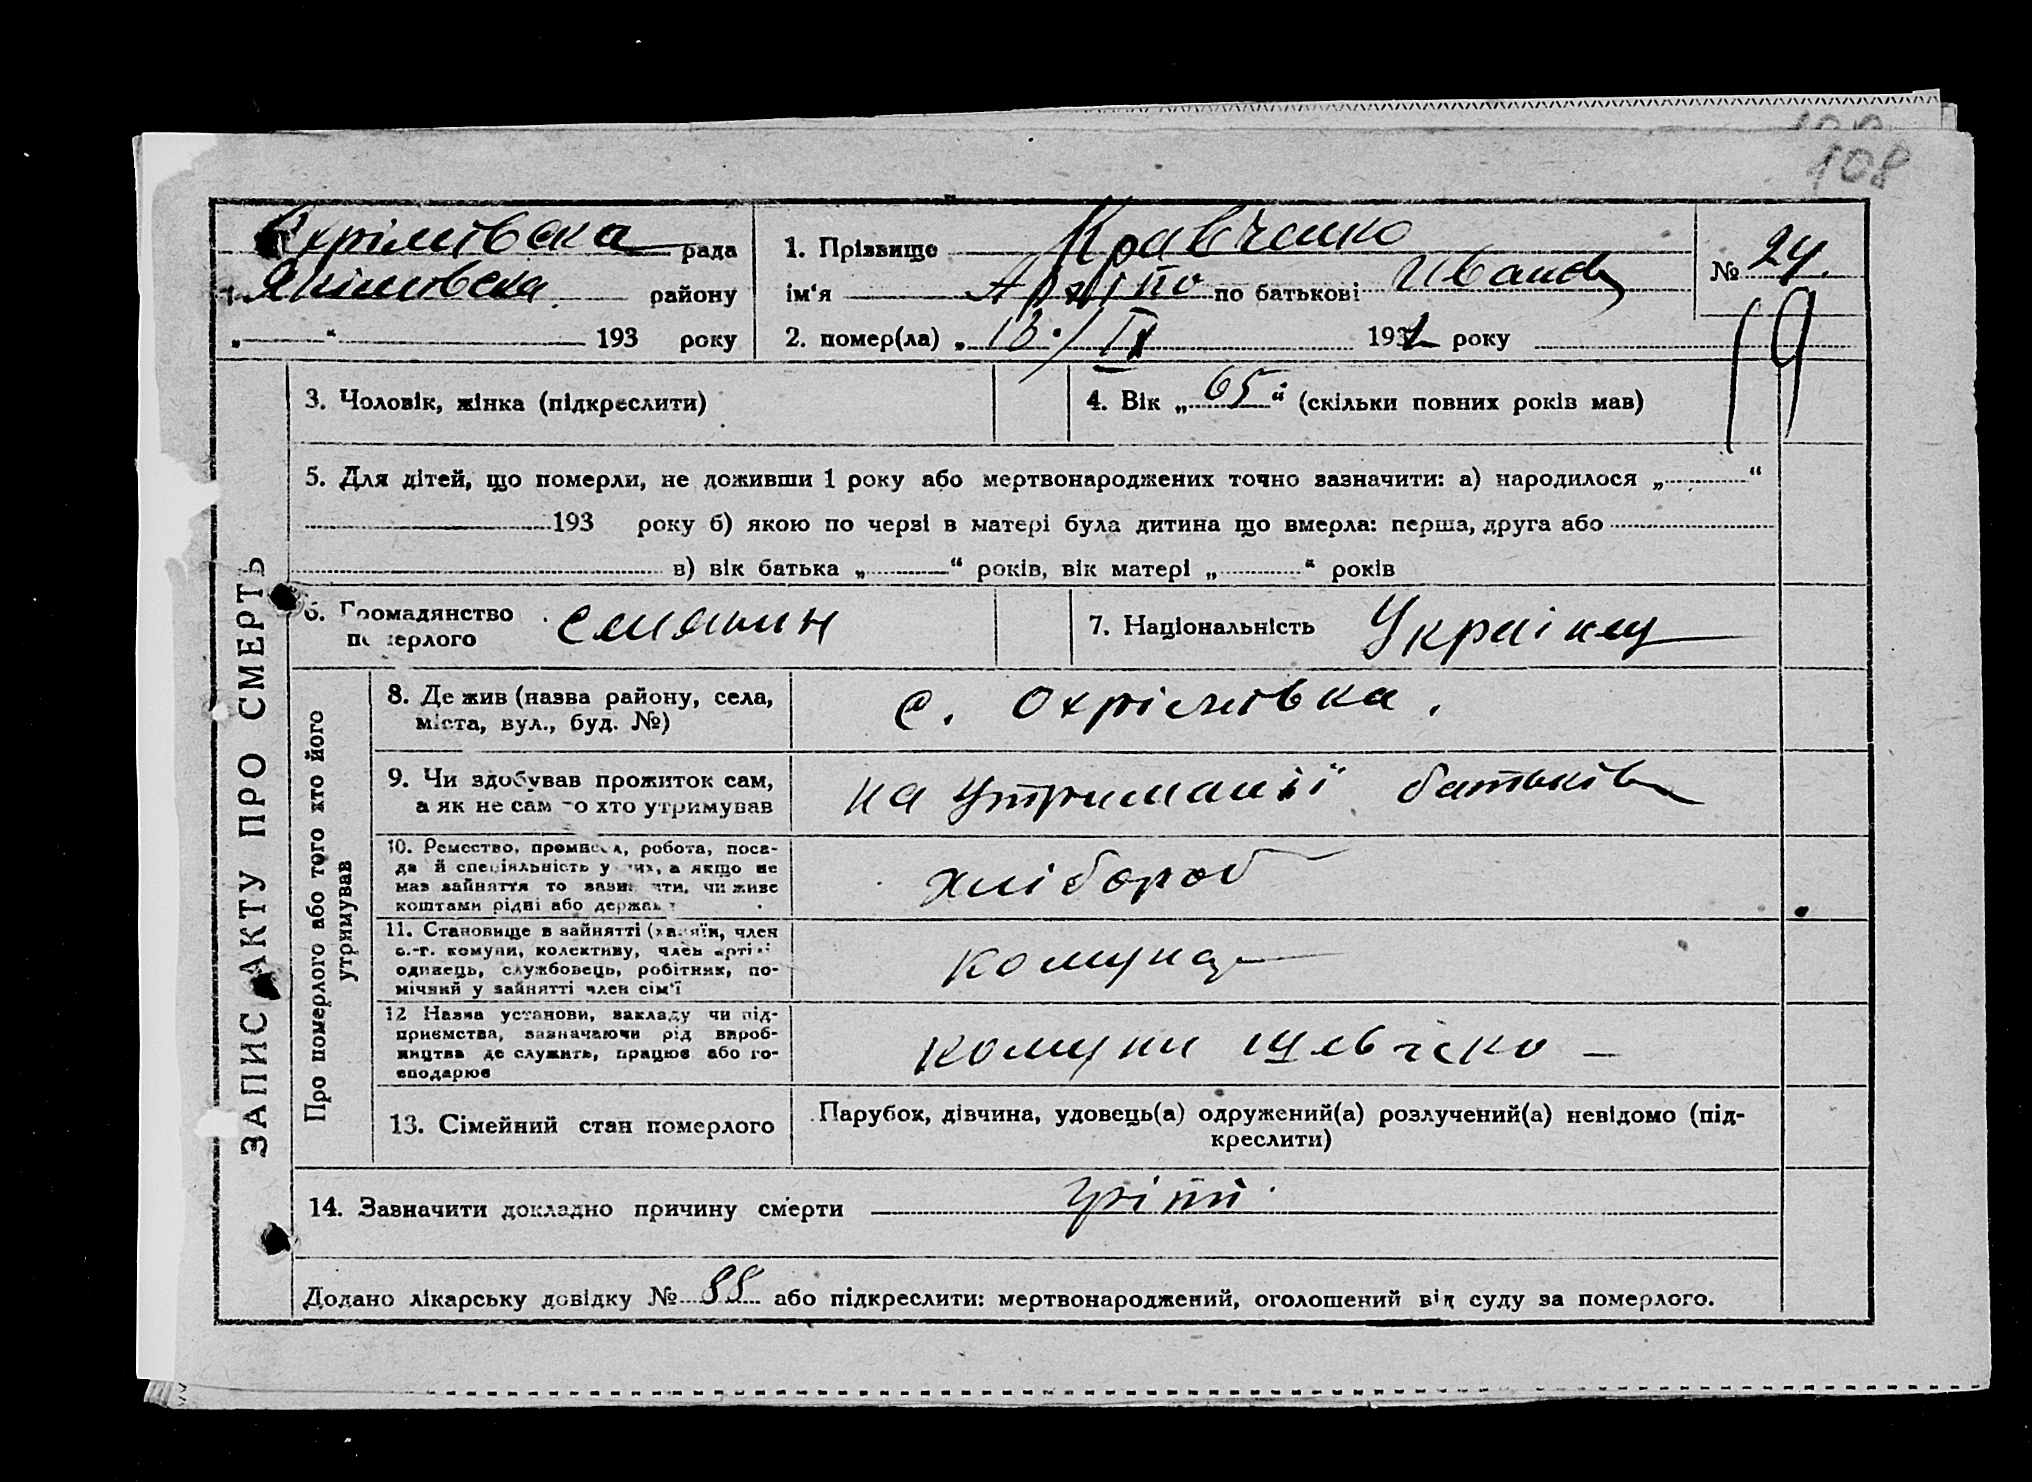 108
Охрімівска рада
Якімовска району
„ “ 193 року
1. Прізвище Кравченко
ім'я по батькові Иванов
2. помер(ла) „ 13./IX 1932 року
№ 24.
19
3. Чоловік, жінка (підкреслити)
4. Вік „ 65 “ (скільки повних років мав)
5. Для дітей, що померли, не доживши 1 року або мертвонароджених точно зазначити: а) народилося „ “
193 року б) якою по черзі в матері була дитина що вмерла: перша, друга або
в) вік батька „ “ років, вік матері „ “ років
6. Громадянство померлого
7. Національність Украінец
ЗАПИС АКТУ ПРО СМЕРТЬ
Про померлого або того хто його утримував
8. Де жив (назва району, села,
міста, вул., буд. №)
с. Охрімівка.
9. Чи здобував прожиток сам,
а як не сам то хто утримував
на утриманії батьків
10. Ремество, промисел, робота, поса-
да й спеціяльність у них, а якщо не
мав зайняття то зазначити, чи живе
коштами рідні або держави
хлібороб
11. Становище в зайнятті (хазяїн, член
с.-г. комуни, колективу, член артілі
одинець, службовець, робітник, по-
мічний у зайнятті член сім'ї
комунар
12 Назва установи, закладу чи під-
приємства, зазначаючи рід вироб-
ництва де служить, працює або го-
сподарює
комуни
13. Сімейний стан померлого
Парубок, дівчина, удовець(а) одружений(а) розлучений(а) невідомо (під-
креслити)
14. Зазначити докладно причину смерти гріпп.
Додано лікарську довідку № 88 або підкреслити: мертвонароджений, оголошений від суду за померлого.